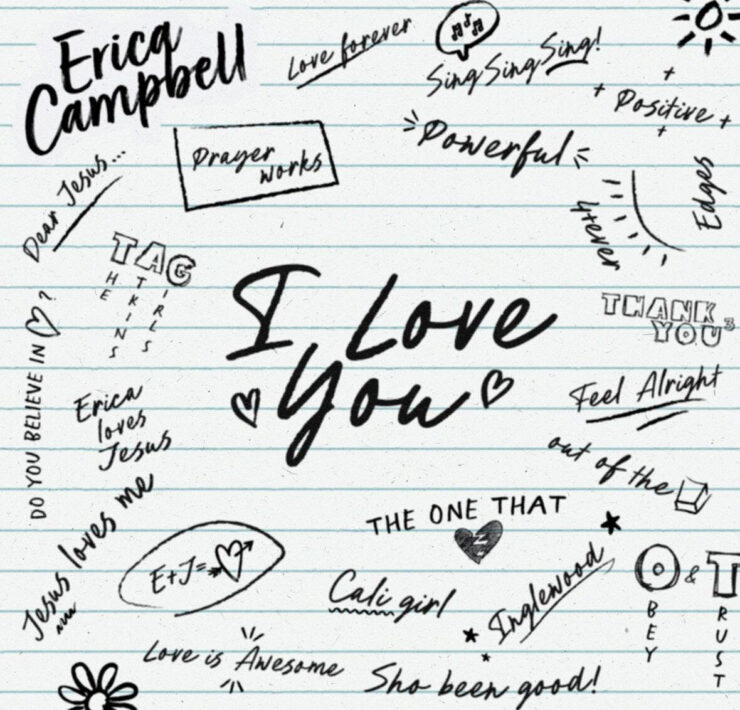 Erica
Campbell
Love forever
Sing Sing Sing!
+ Positive +
Powerful
Prayer
works
Dear Jesus...
Edges
4+ever
TAG
HE
TKINS
IRLS
I Love
You
THANK
YOU³
DO YOU BELIEVE IN ♡?
Erica
loves
Jesus
Feel Alright
out of the
Jesus loves me
THE ONE THAT
E+J=
Cali girl
Inglewood
O & T
OBEY
RUST
Love is Awesome
Sho been good!